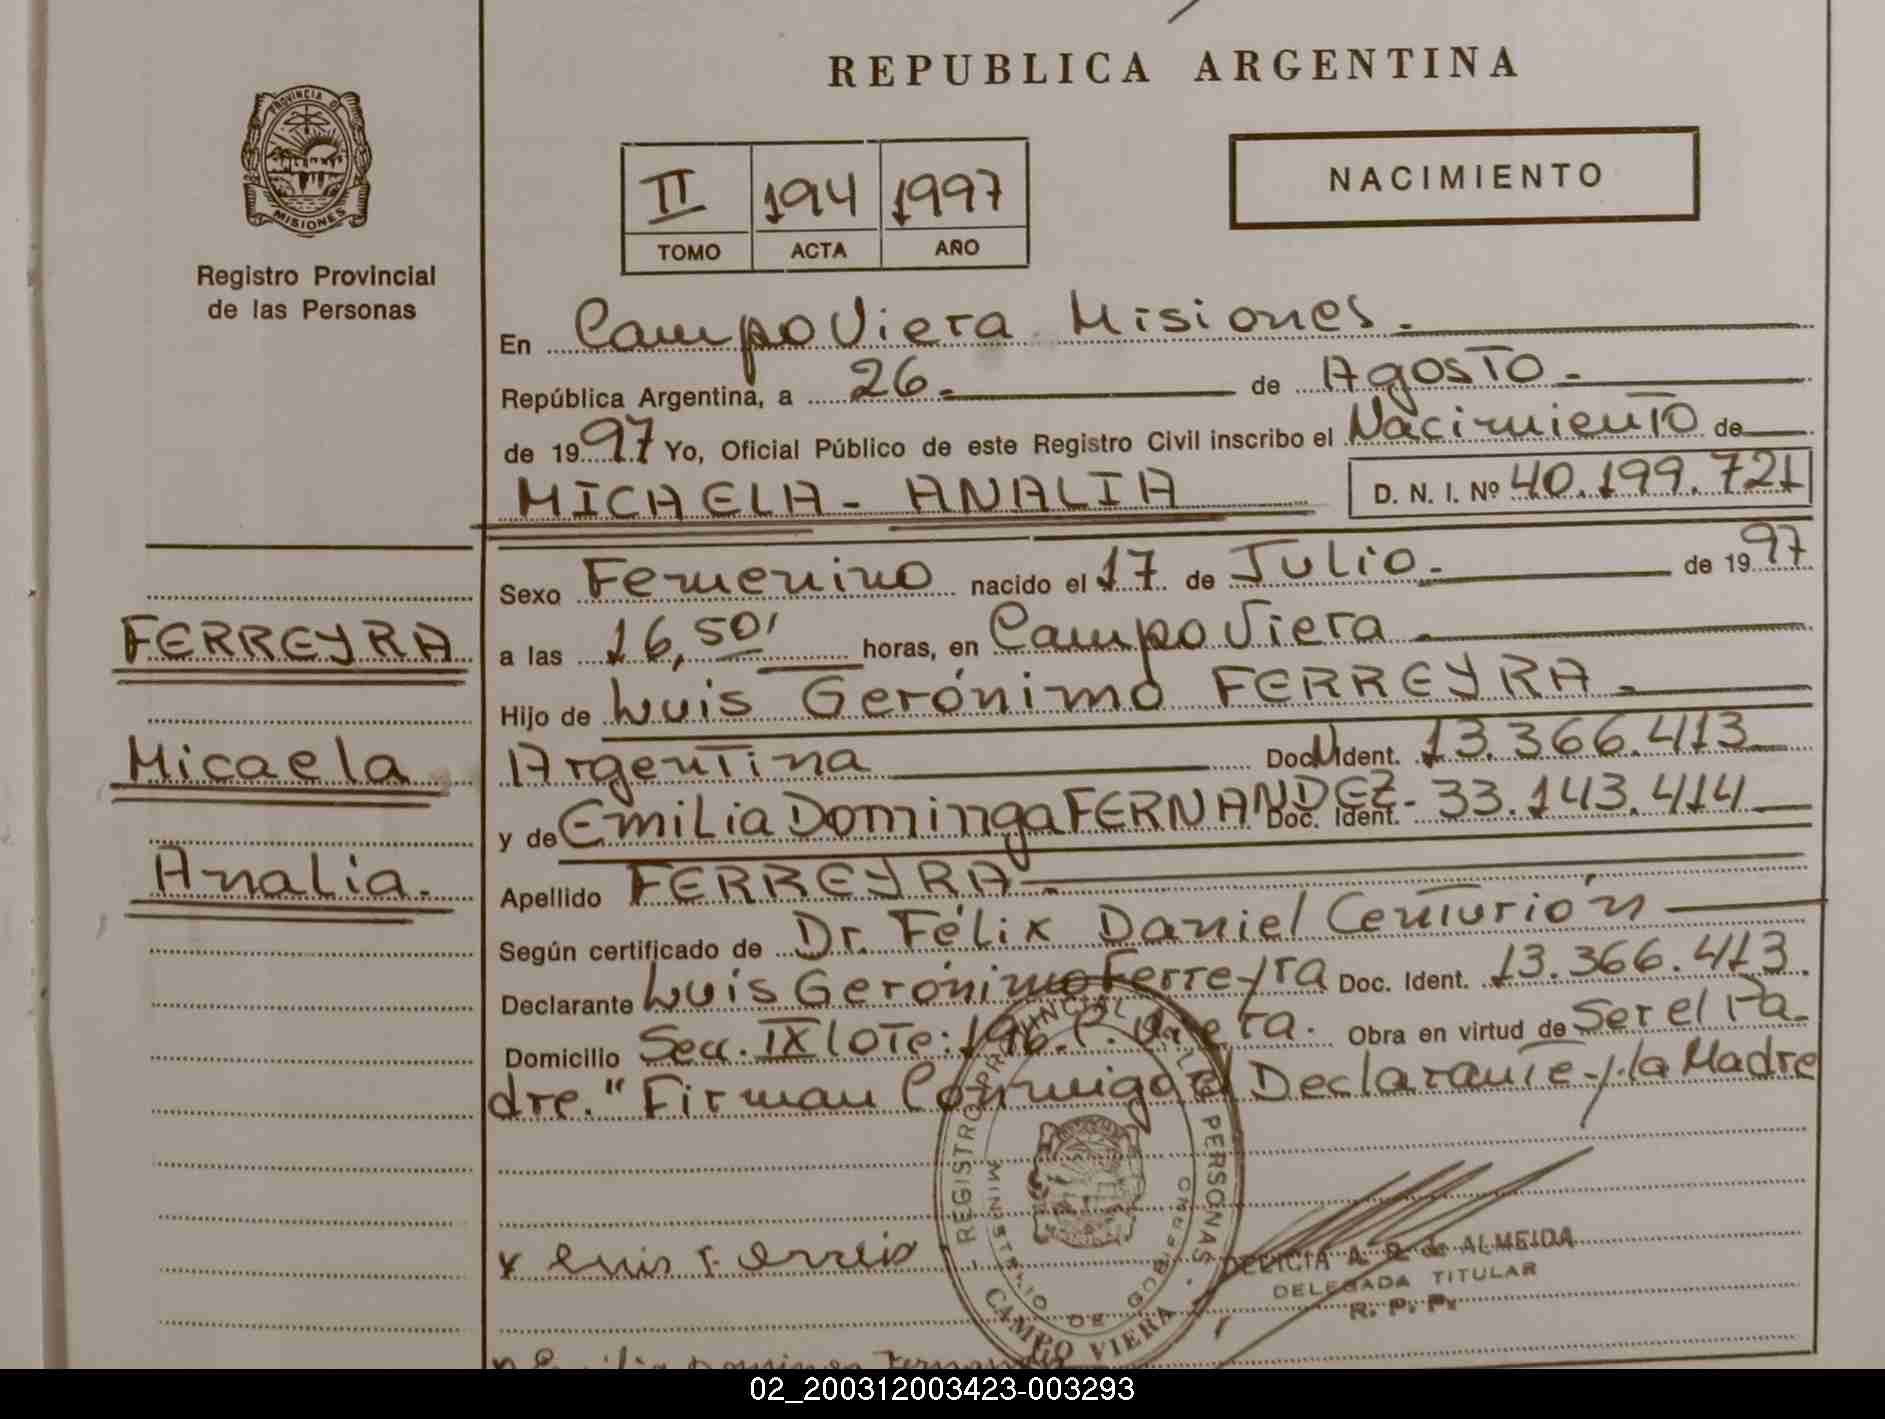 REPUBLICA ARGENTINA
PROVINCIA D
MISIONES
Registro Provincial
de las Personas
II 194 1997
TOMO ACTA AÑO
NACIMIENTO
En Campo Viera Misiones.
República Argentina, a 26. de Agosto.
de 1997 Yo, Oficial Público de este Registro Civil inscribo el Nacimiento de
MICHAELA - ANALIA D. N. I. Nº 40.199.721
Sexo Femenino nacido el 17 de Julio. de 1997
FERREYRA
a las 16,50' horas, en Campo Viera
Hijo de Luis Gerónimo FERREYRA
Micaela
Argentina Doc. Ident. 13.366.413
y de Emilia Dominga FERNANDEZ Doc. Ident. 33.143.414
Analia.
Apellido FERREYRA
Según certificado de Dr. Félix Daniel Centurión
Declarante Luis Gerónimo Ferreyra Doc. Ident. 13.366.413.
Domicilio Secc. IX lote: 196. C. Viera. Obra en virtud de Ser el Pa-
dre." Firman Conmigo el Declarante y la Madre
REGISTRO PROVINCIAL DE LAS PERSONAS
MINISTERIO DE GOBIERNO
CAMPO VIERA
x Luis F
DELICIA A. R. de ALMEIDA
DELEGADA TITULAR
R. P. P.
x Emilia Dominga Fernandez
02_200312003423-003293